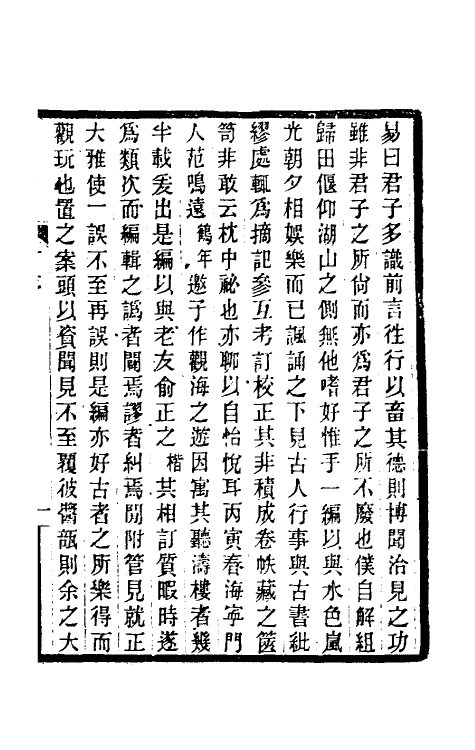 易曰君子多識前言往行以畜其德則博聞洽見之功
雖非君子之所尙而亦爲君子之所不廢也僕自解組
歸田偃仰湖山之側無他嗜好惟手一編以與水色嵐
光朝夕相娛樂而已諷誦之下見古人行事與古書紕
繆處輒爲摘記參互考訂校正其非積成卷帙藏之篋
笥非敢云枕中祕也亦聊以自怡悅耳丙寅春海寧門
人范鳴遠鶴年邀子作觀海之遊因寓其聽濤樓者幾
半載爰出是編以與老友俞正之楷共相訂質暇時遂
爲類次而編輯之譌者闢焉謬者糾焉閒附管見就正
大雅使一誤不至再誤則是編亦好古者之所樂得而
觀玩也置之案頭以資聞見不至覆彼醬瓿則余之大
序
一